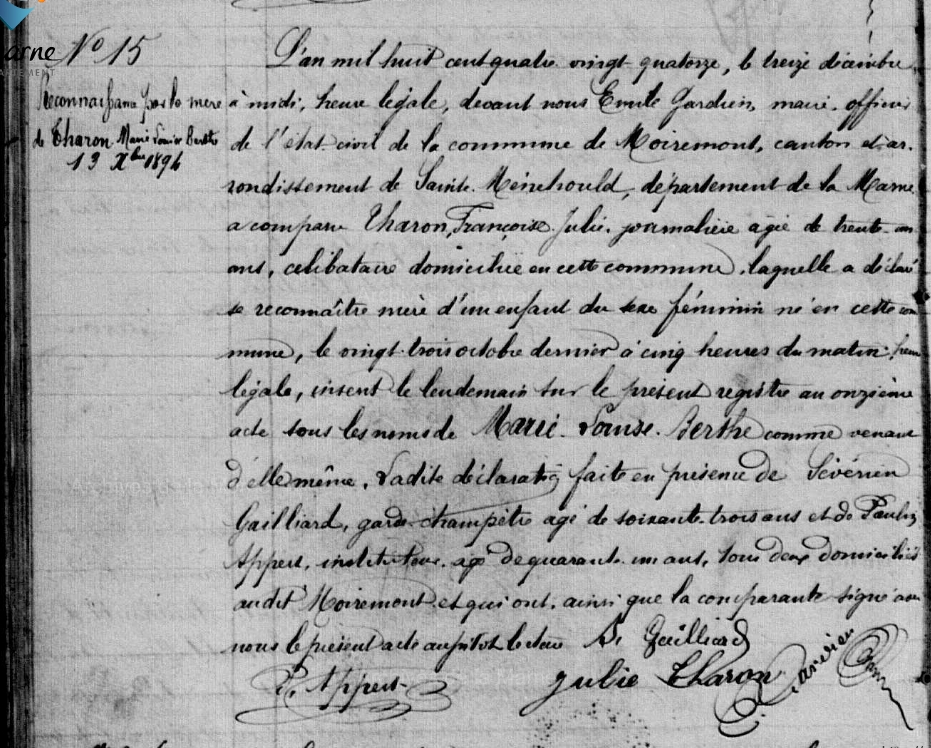 arne
No 15
Reconnaissance par la mère
de Charon Marie Louise Berthe
13 Xbre 1894
L'an mil huit cent quatre vingt quatorze, le treize décembre
à midi, heure légale, devant nous Emile Gardien, maire, officier
de l'état civil de la commune de Moiremont, canton et ar-
rondissement de Sainte Ménehould, département de la Marne
a comparu Charon, Françoise Julie, journalière âgée de trente un
ans, célibataire domiciliée en cette commune, laquelle a déclaré
se reconnaître mère d'un enfant du sexe féminin né en cette com
mune, le vingt trois octobre dernier à cinq heures du matin, heure
légale, inscrit le lendemain sur le présent registre au onzième
acte sous les noms de Marie Louise Berthe comme venant
d'elle même. Ladite déclaration faite en présence de Sévérien
Gailliard, garde champêtre agé de soixante trois ans et de Paulin
Appert, instituteur, agé de quarante un ans, tous deux domiciliés
audit Moiremont et qui ont, ainsi que la comparante signé avec
nous le présent acte aussitôt lecture S. Gailliard
P. Appert Julie Charon